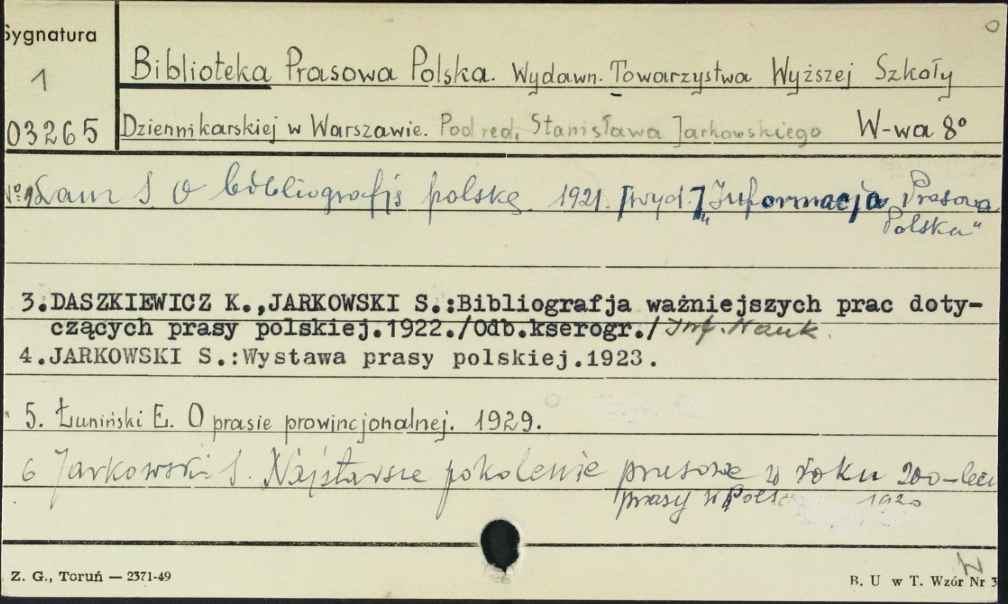 Sygnatura
1
03265
Biblioteka Prasowa Polska. Wydawn. Towarzystwa Wyższej Szkoły
Dziennikarskiej w Warszawie. Pod red. Stanisława Jarkowskiego W-wa 8°
Lam S. O bibliografję polską. 1921. [wyd.] "Informacja Prasowa
Polska"
3.DASZKIEWICZ K.,JARKOWSKI S.:Bibliografja ważniejszych prac doty-
czących prasy polskiej.1922./Odb.kserogr./ Inf. Nauk.
4.JARKOWSKI S.:Wystawa prasy polskiej.1923.
5. Łuniński E. O prasie prowincjonalnej. 1929.
6 Jarkowski S. Najstarsze pokolenie prasowe w roku 200-leci
prasy w Polsce 1920
Z. G., Toruń — 2371-49
B. U w T. Wzór Nr 3